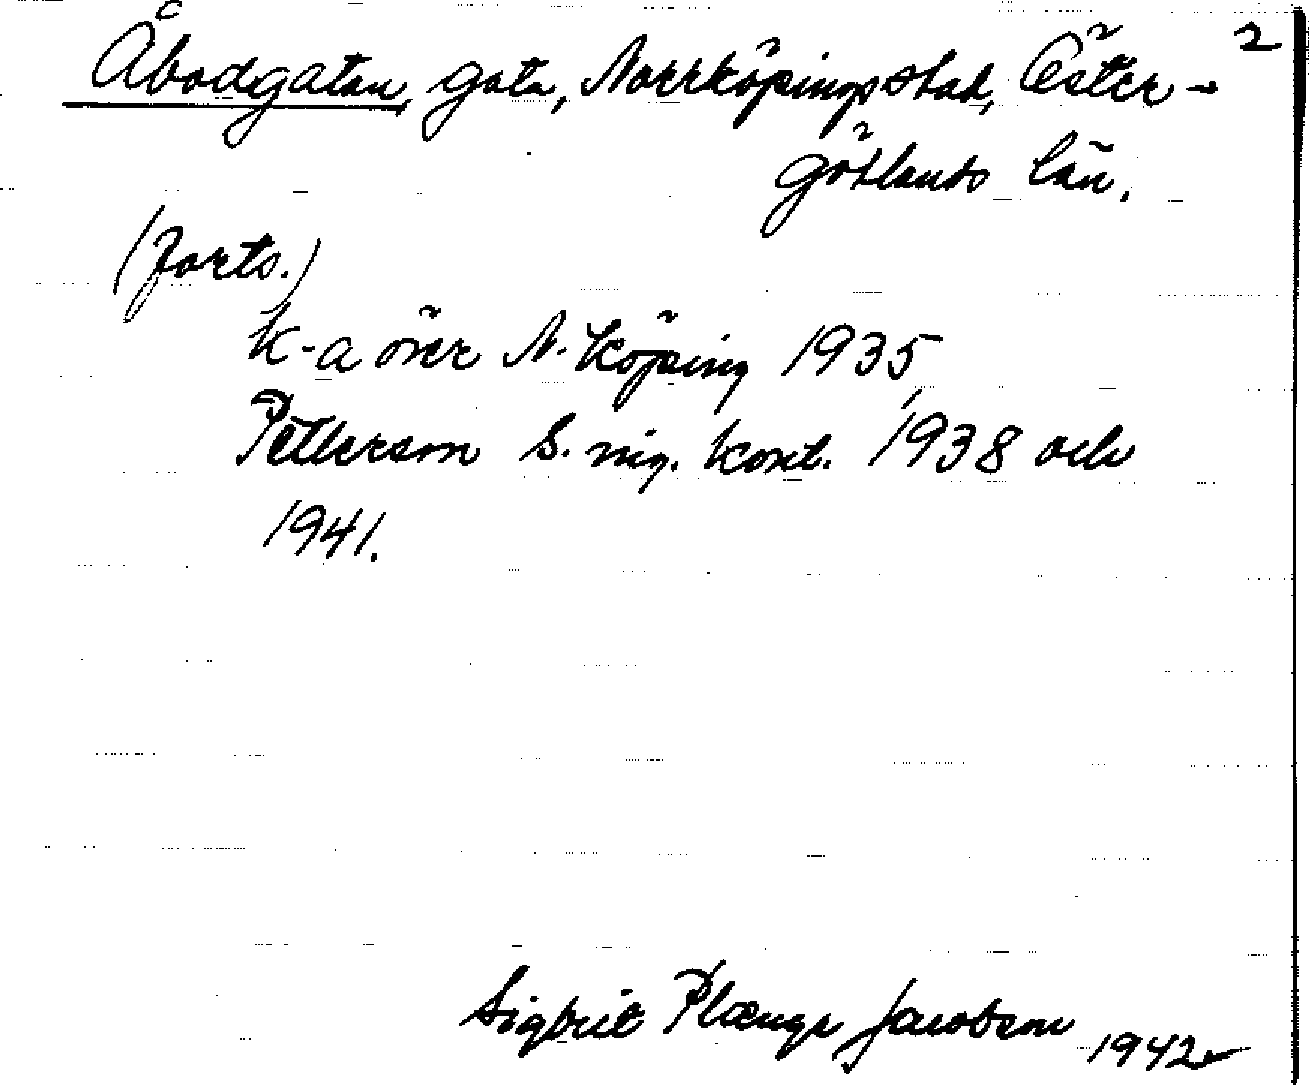 2
Åbodgatan, gata, Norrköpings stad, Öster-
götlands län.
(forts.)
K-a över N.köping 1935,
Petterson S. mg. kont. 1938 och
1941.
Sigbrit Plænge Jacobson 1942